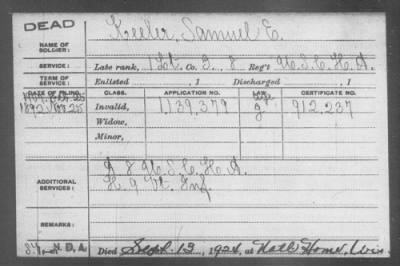 DEAD
NAME OF SOLDIER: Keeler, Samuel E.
SERVICE: Late rank, 1 Lt. Co. G. 8 Reg't U.S.C.H.A.
TERM OF SERVICE: Enlisted , 1 Discharged , 1
DATE OF FILING. CLASS. APPLICATION NO. LAW. CERTIFICATE NO.
1892 Invalid, 1,139,379 912,237
Widow,
Minor,
ADDITIONAL SERVICES: G 8 U.S.C.H.A.
H. 9 Vt. Inf.
REMARKS:
N.D.A. Died Sept. 13, 1924, at Natl Home, Wis.